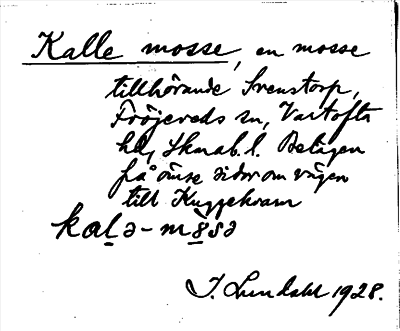 Kalle mosse, en mosse
tillhörande Svenstorp,
Fröjereds sn, Vartofta
hd, Skarab. l. Belägen
på ömse sidor om vägen
till Kuggekvarn
kalə-məsə
J. Lundahl 1928.